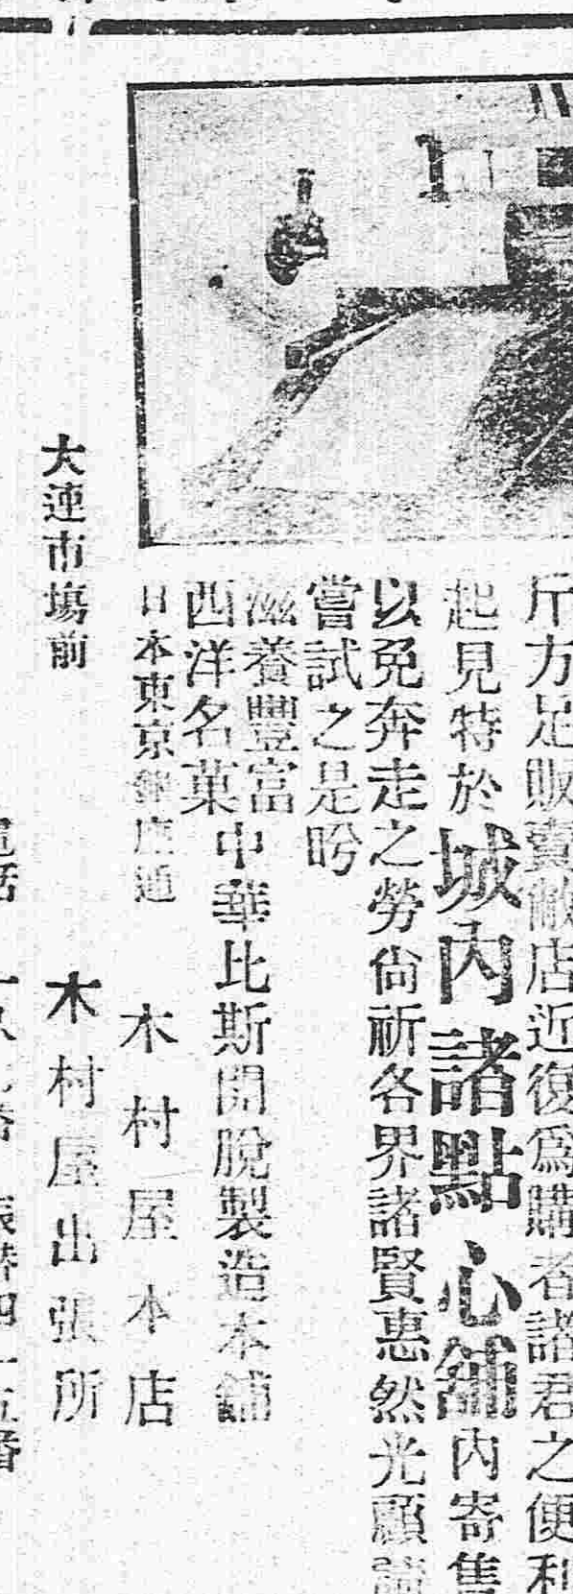 斤方足販賣敝店近復爲購者諸君之便利
起見特於城內諸點心舖內寄售
以免奔走之勞尙祈各界諸賢惠然光顧請
嘗試之是盼
滋養豐富
西洋名菓
中華比斯開脫製造本舖
日本東京銀座通 木村屋本店
大連市場前 木村屋出張所
電話